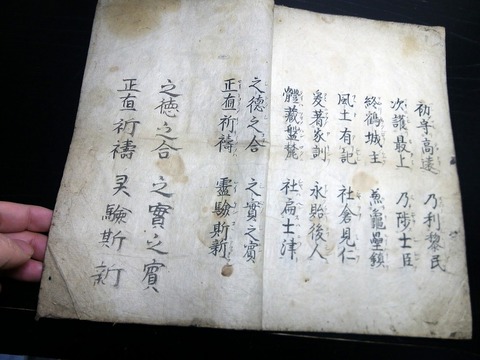 初守高遠 乃利黎民
次護最上 乃陟士臣
終鶴城主 龜壘鎮
風土有記 社倉見仁
爰著家訓 永貽後人
體藏盤麓 社扁土津
之德之合 之實之賓
正直祈禱 靈驗斯新
之德之合 之實之賓
正直祈禱 灵驗斯新